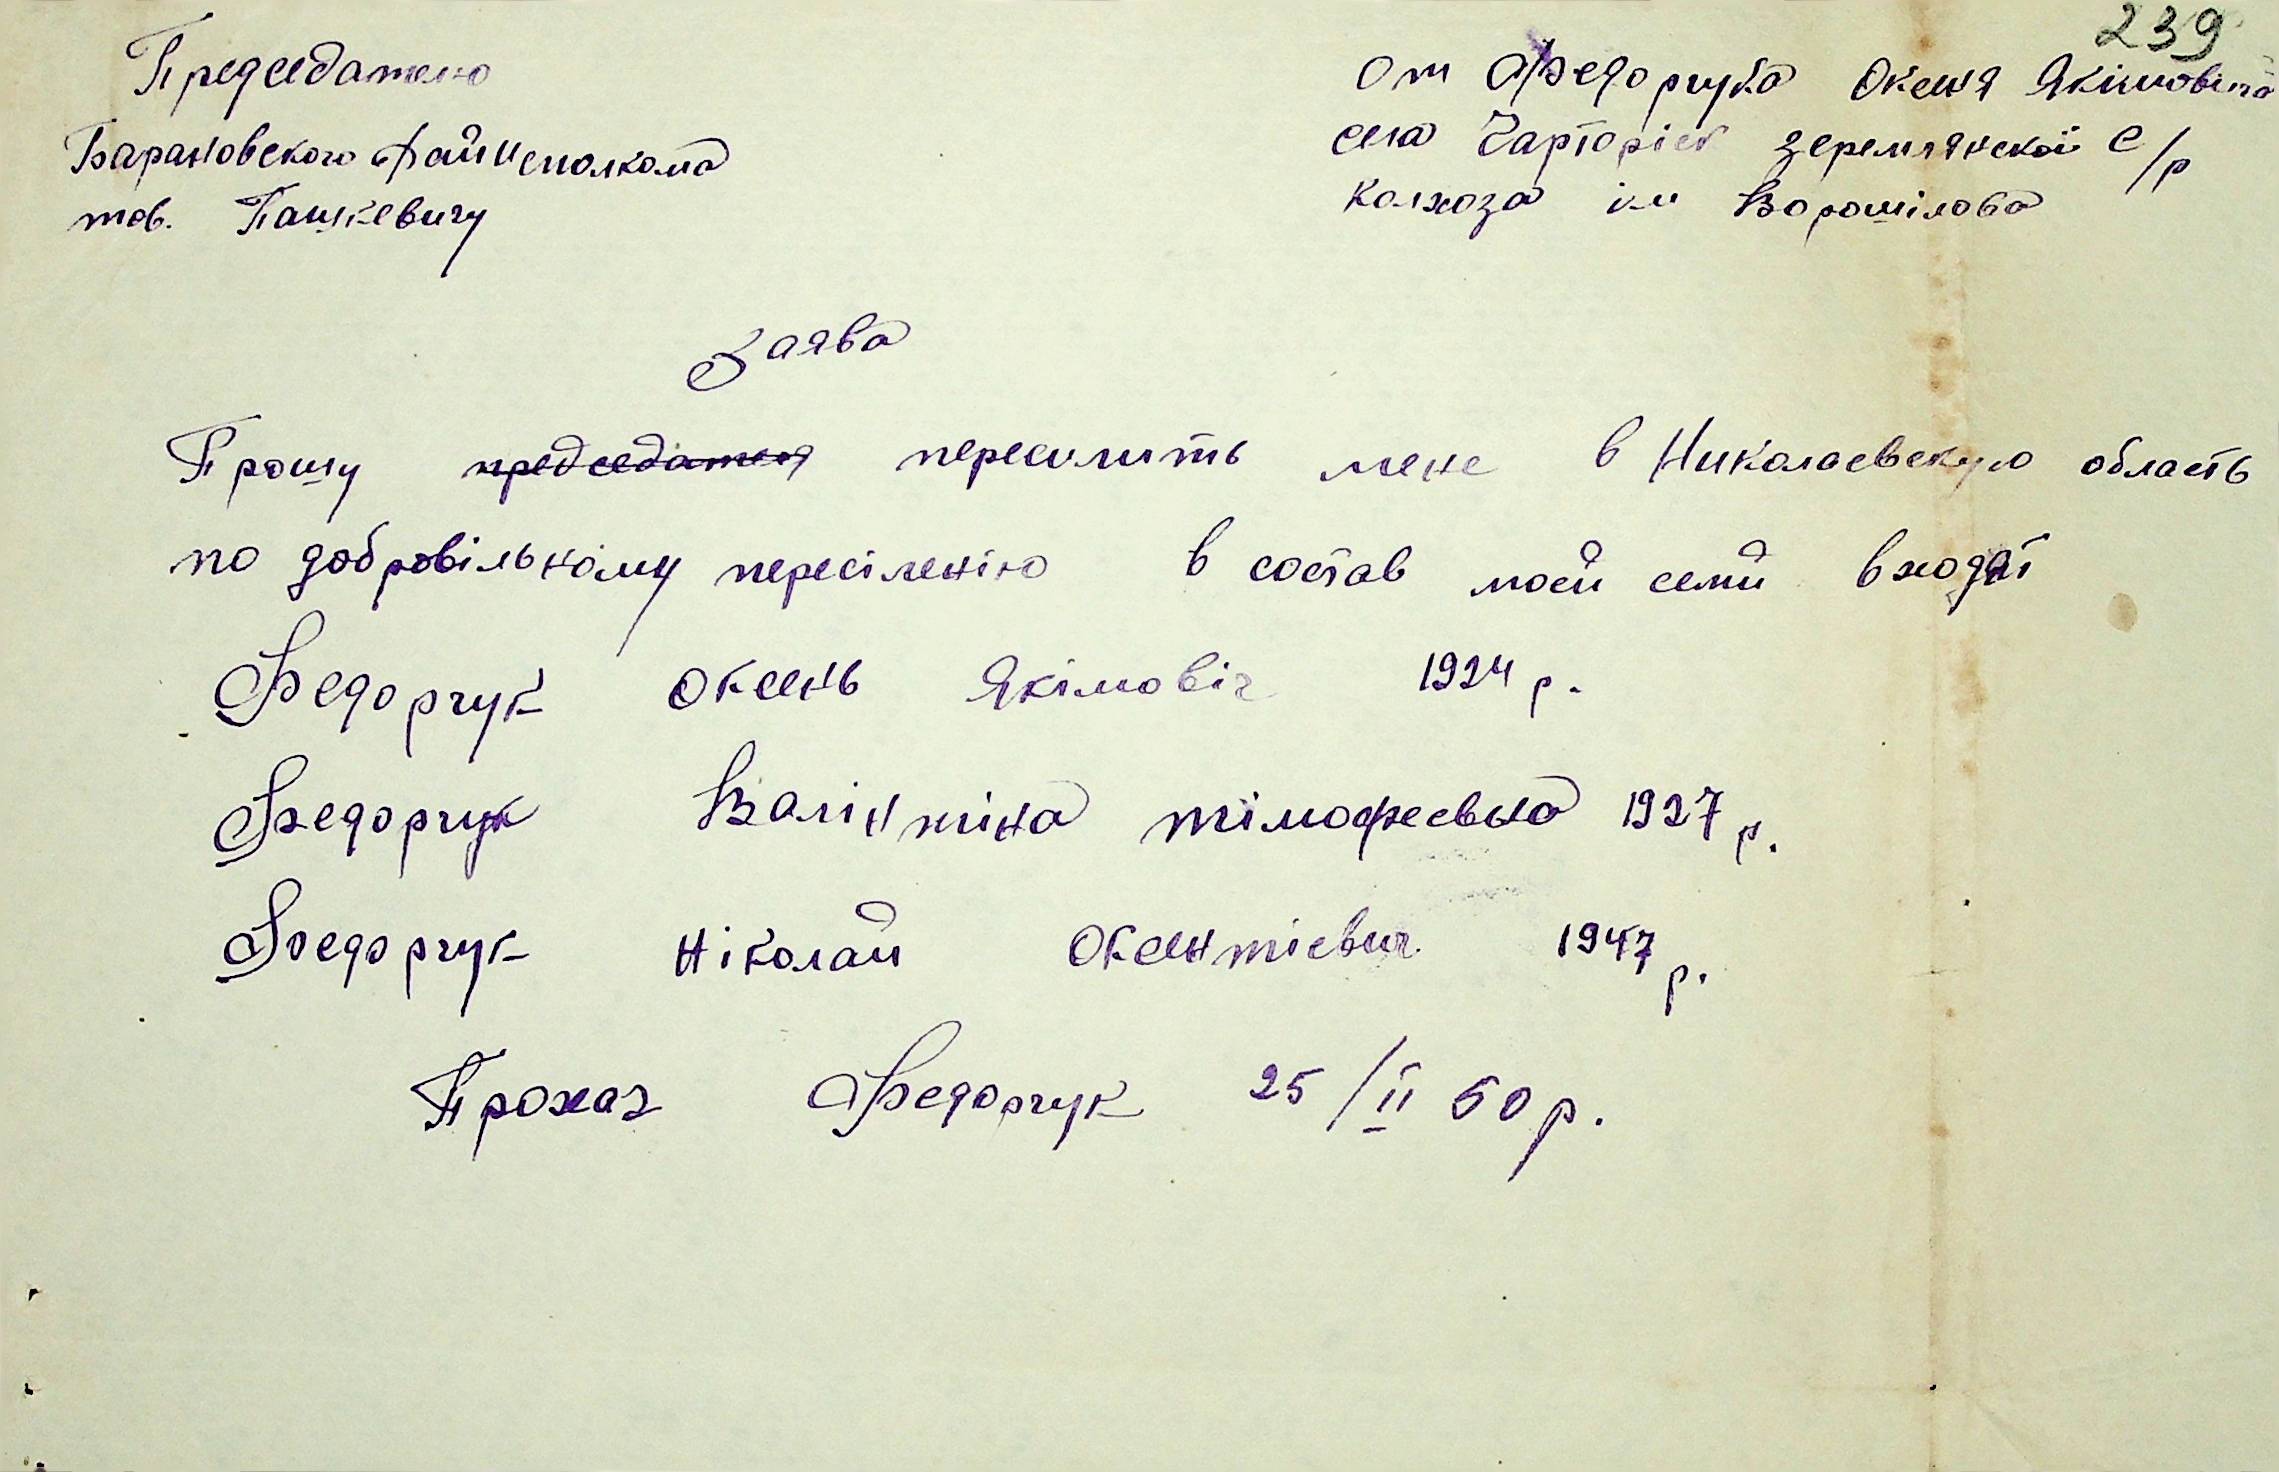 239
Председателю
Барановского Райисполкома
тов. Пашкевичу
От Федорчука Оксеня Якімовіча
села Чарторієк зеремлянской с/р
колхоза ім Ворошілова
Заява
Прошу председателя переселить мене в Николаевскую область
по добровільному пересіленію в состав моей семи входят
Федорчук Оксень Якімовіч 1924 р.
Федорчук Валінтіна тімофеевна 1927 р.
Федорчук Ніколай Оксентієвич 1947 р.
Прохач Федорчук 25/II 50 р.